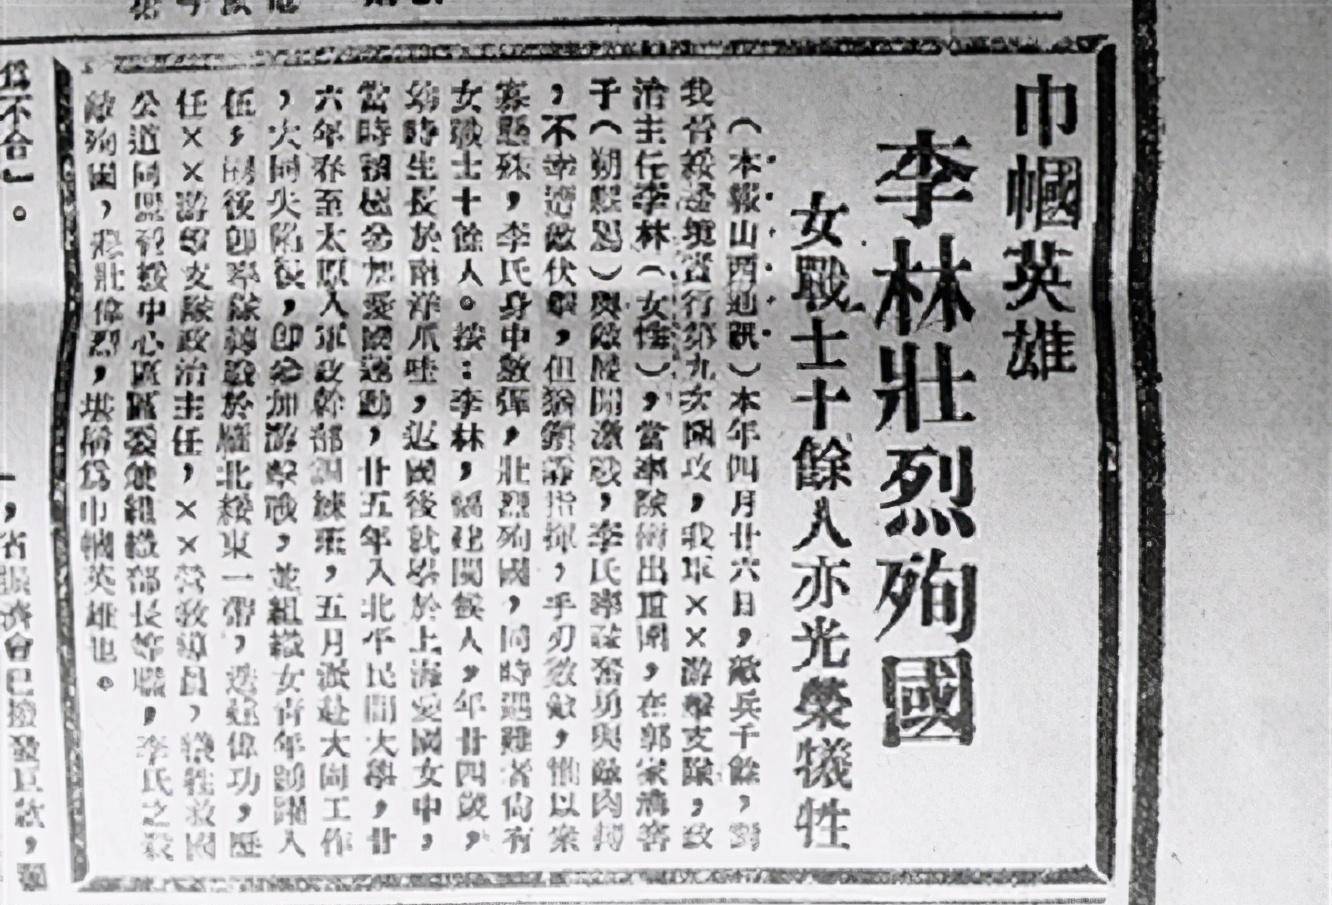 巾幗英雄
李林壯烈殉國
女戰士十餘人亦光榮犧牲
（本報山西通訊）本年四月廿六日，敵兵千餘，對
我晉綏邊境實行第九次圍攻，我軍××游擊支隊，政
治主任李林（女性），當率隊衝出重圍，在郭家窰
子（朔縣屬）與敵展開激戰，李氏率部奮勇與敵肉搏
，不幸遭敵伏擊，但猶鎮靜指揮，手刃數敵，惟以衆
寡懸殊，李氏身中數彈，壯烈殉國，同時遇難者尚有
女戰士十餘人。按：李林，福建閩侯人，年廿四歲，
幼時生長於南洋爪哇，返國後就學於上海愛國女中，
當時積極參加愛國運動，廿五年入北平民國大學，廿
六年春至太原入軍政幹部訓練班，五月派赴大同工作
，大同失陷後，即參加游擊戰，並組織女青年踴躍入
伍，嗣後即率隊轉戰於雁北綏東一帶，迭建偉功，歷
任××游擊支隊政治主任，××營教導員，犧牲救國
公道同盟晉綏中心區區委兼組織部長等職，李氏之殺
敵殉國，悲壯偉烈，堪稱爲巾幗英雄也。
爲不合」。
，省賑濟會已撥發巨款，